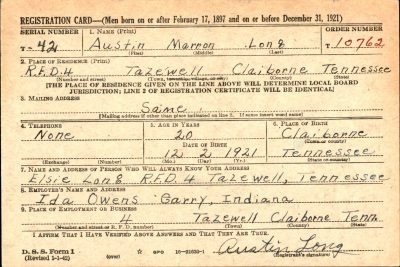 REGISTRATION CARD—(Men born on or after February 17, 1897 and on or before December 31, 1921)
SERIAL NUMBER 1. NAME (Print) ORDER NUMBER
T- 42 Austin Marron Long T10762
(First) (Middle) (Last)
2. PLACE OF RESIDENCE (Print)
R.F.D.4 Tazewell Claiborne Tennessee
(Number and street) (Town, township, village, or city) (County) (State)
[THE PLACE OF RESIDENCE GIVEN ON THE LINE ABOVE WILL DETERMINE LOCAL BOARD
JURISDICTION; LINE 2 OF REGISTRATION CERTIFICATE WILL BE IDENTICAL]
3. MAILING ADDRESS
Same
[Mailing address if other than place indicated on line 2. If same insert word same]
4. TELEPHONE 5. AGE IN YEARS 6. PLACE OF BIRTH
None 20 Claiborne
DATE OF BIRTH (Town or county)
12 2 1921 Tennessee
(Exchange) (Number) (Mo.) (Day) (Yr.) (State or country)
7. NAME AND ADDRESS OF PERSON WHO WILL ALWAYS KNOW YOUR ADDRESS
Elsie Long R.F.D.4 Tazewell, Tennessee
8. EMPLOYER'S NAME AND ADDRESS
Ida Owens Garry, Indiana
9. PLACE OF EMPLOYMENT OR BUSINESS
4 Tazewell Claiborne Tenn
(Number and street or R. F. D. number) (Town) (County) (State)
I AFFIRM THAT I HAVE VERIFIED ABOVE ANSWERS AND THAT THEY ARE TRUE.
D. S. S. Form 1 GPO 16-21630-1 Austin Long
(over) (Registrant's signature)